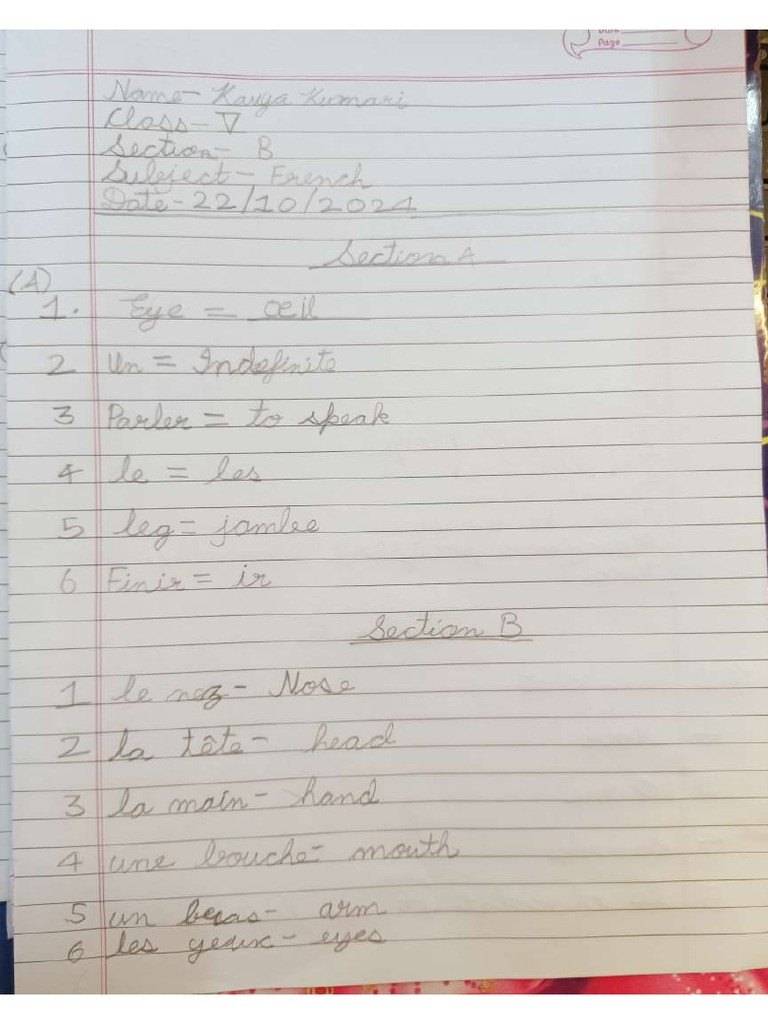 Date
Page
Name- Kavya Kumari
Class-V
Section- B
Subject- French
Date-22/10/2024
Section A
(A)
1. Eye = oeil
2 Un = Indefinite
3 Parler = to speak
4 le = les
5 leg = jambe
6 Finir = ir
Section B
1 le nez- Nose
2 la tête- head
3 la main- hand
4 une bouche- mouth
5 un bras- arm
6 les yeux- eyes